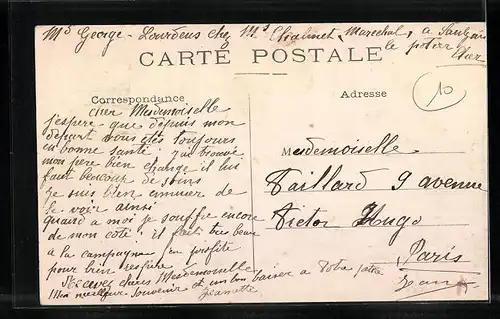 Mr George - Lourdens chez Mr Chalmet Marechal a Sauzais
le potier
Cher
CARTE POSTALE
10
Correspondance
Adresse
cher Mesdemoiselle
j'espere - que depuis mon
depart vous etes toujours
en bonne santé. J'ai trouvé
mon pere bien changé il lui
faut beaucoup de soins
je suis bien ennuier de
le voir ainsi
quand a moi je souffre encore
de mon coté. il fait tres beau
à la campagne on profite
pour bien respirer
Recevez cheres Mesdemoiselle
Mon meilleur souvenir et un bon baiser a Votre
Jeannette
Mesdemoiselle
Taillard 9 avenue
Victor Hugo
Paris